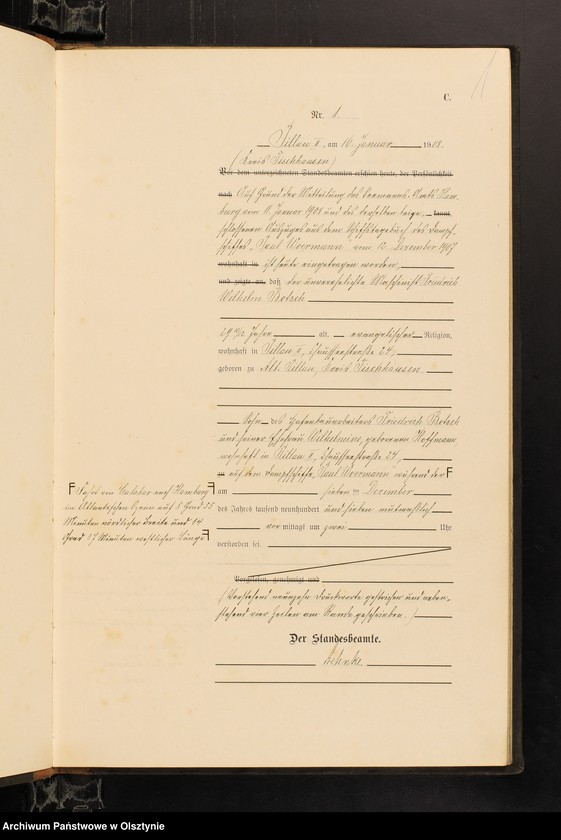 C.
Nr. 1.
Pillau II, am 16. Januar 1908.
(Kreis Fischhausen)
Vor dem unterzeichneten Standesbeamten erschien heute, der Persönlichkeit
nach Auf Grund der Mitteilung des Seemanns-Amts Ham-
burg vom 11. Januar 1908 und des derselben beige- kannt,
schlossenen Auszuges aus dem Schiffstagebuch des Dampf-
schiffes „Paul Woermann“ vom 12. Dezember 1907
wohnhaft in ist heute eingetragen worden,
und zeigte an, daß der unverehelichte Maschinist Friedrich
Wilhelm
29 Jahre alt, evangelischer Religion,
wohnhaft in Pillau II, Chausseestraße 24,
geboren zu Alt-Pillau, Kreis Fischhausen
Sohn des Hafenbauarbeiters Friedrich
und seiner Ehefrau Wilhelmine, geborenen Hoffmann
wohnhaft in Pillau II, Chausseestraße 24,
zu auf dem Dampfschiffe „Paul Woermann“ während der
Fahrt von Calabar nach Hamburg
im Atlantischen Ozean auf 8 Grad 55
Minuten nördlicher Breite und 14
Grad 37 Minuten westlicher Länge
am sieben ten Dezember
des Jahres tausend neunhundert und sieben mutmaßlich
vor mittags um zwei Uhr
verstorben sei.
Vorgelesen, genehmigt und
(Vorstehend neunzehn Druckworte gestrichen und neben-
stehend vier Zeilen am Rande geschrieben.)
Der Standesbeamte.
Archiwum Państwowe w Olsztynie